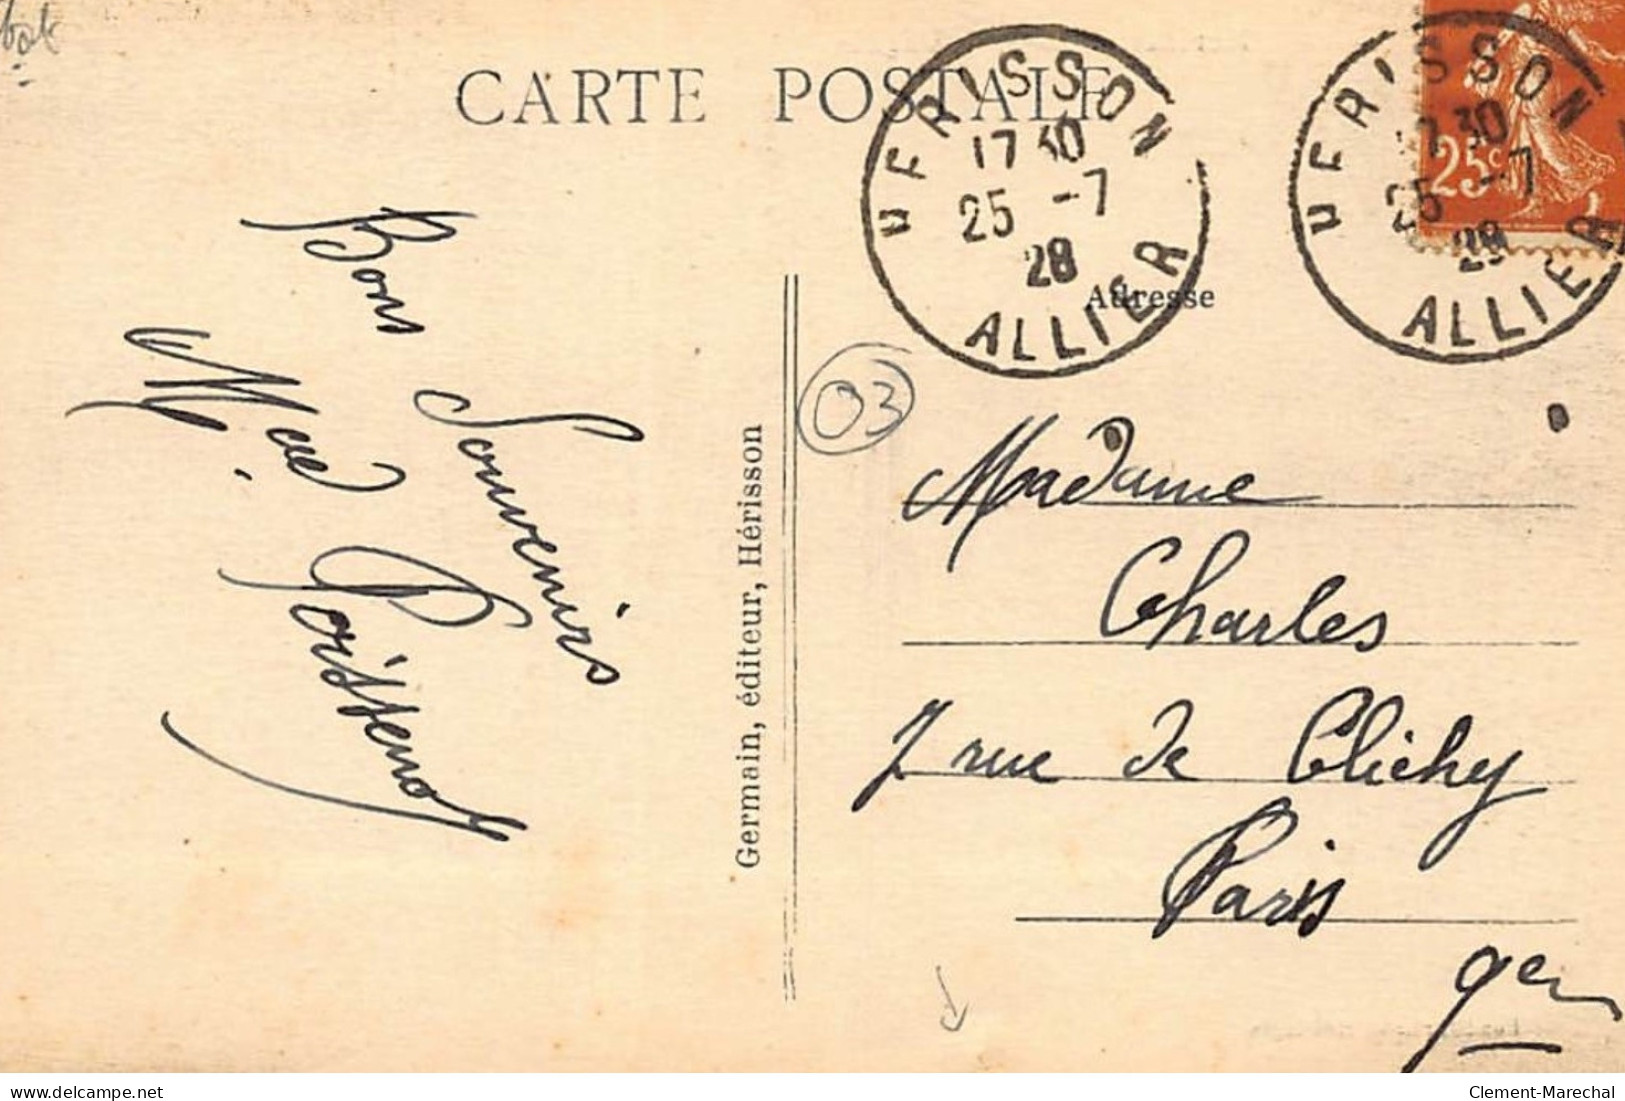 CARTE POSTALE
HERISSON
17 30
25 -7
28
ALLIER
HERISSON
17 30
25 -7
28
ALLIER
25c
Adresse
03
Bons
Souvenirs
Germain, éditeur, Hérisson
Madame
Charles
7 rue de Clichy
Paris
9e
delcampe.net
Clement-Marechal